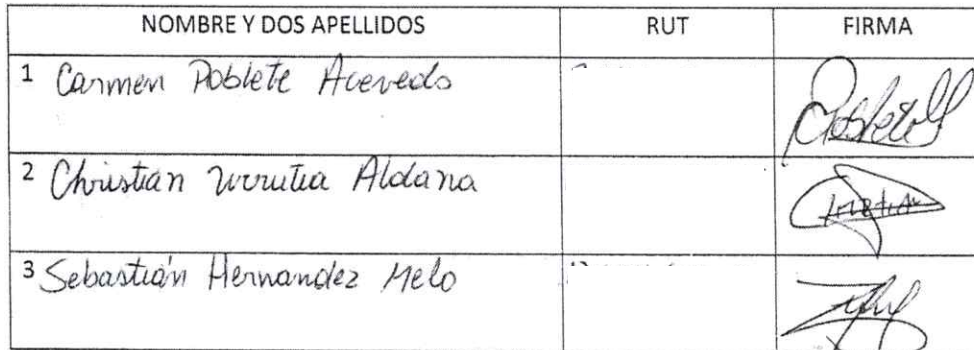 NOMBRE Y DOS APELLIDOS RUT FIRMA
1 Carmen Poblete Acevedo
2 Christian Urrutia Aldana
3 Sebastián Hernandez Melo